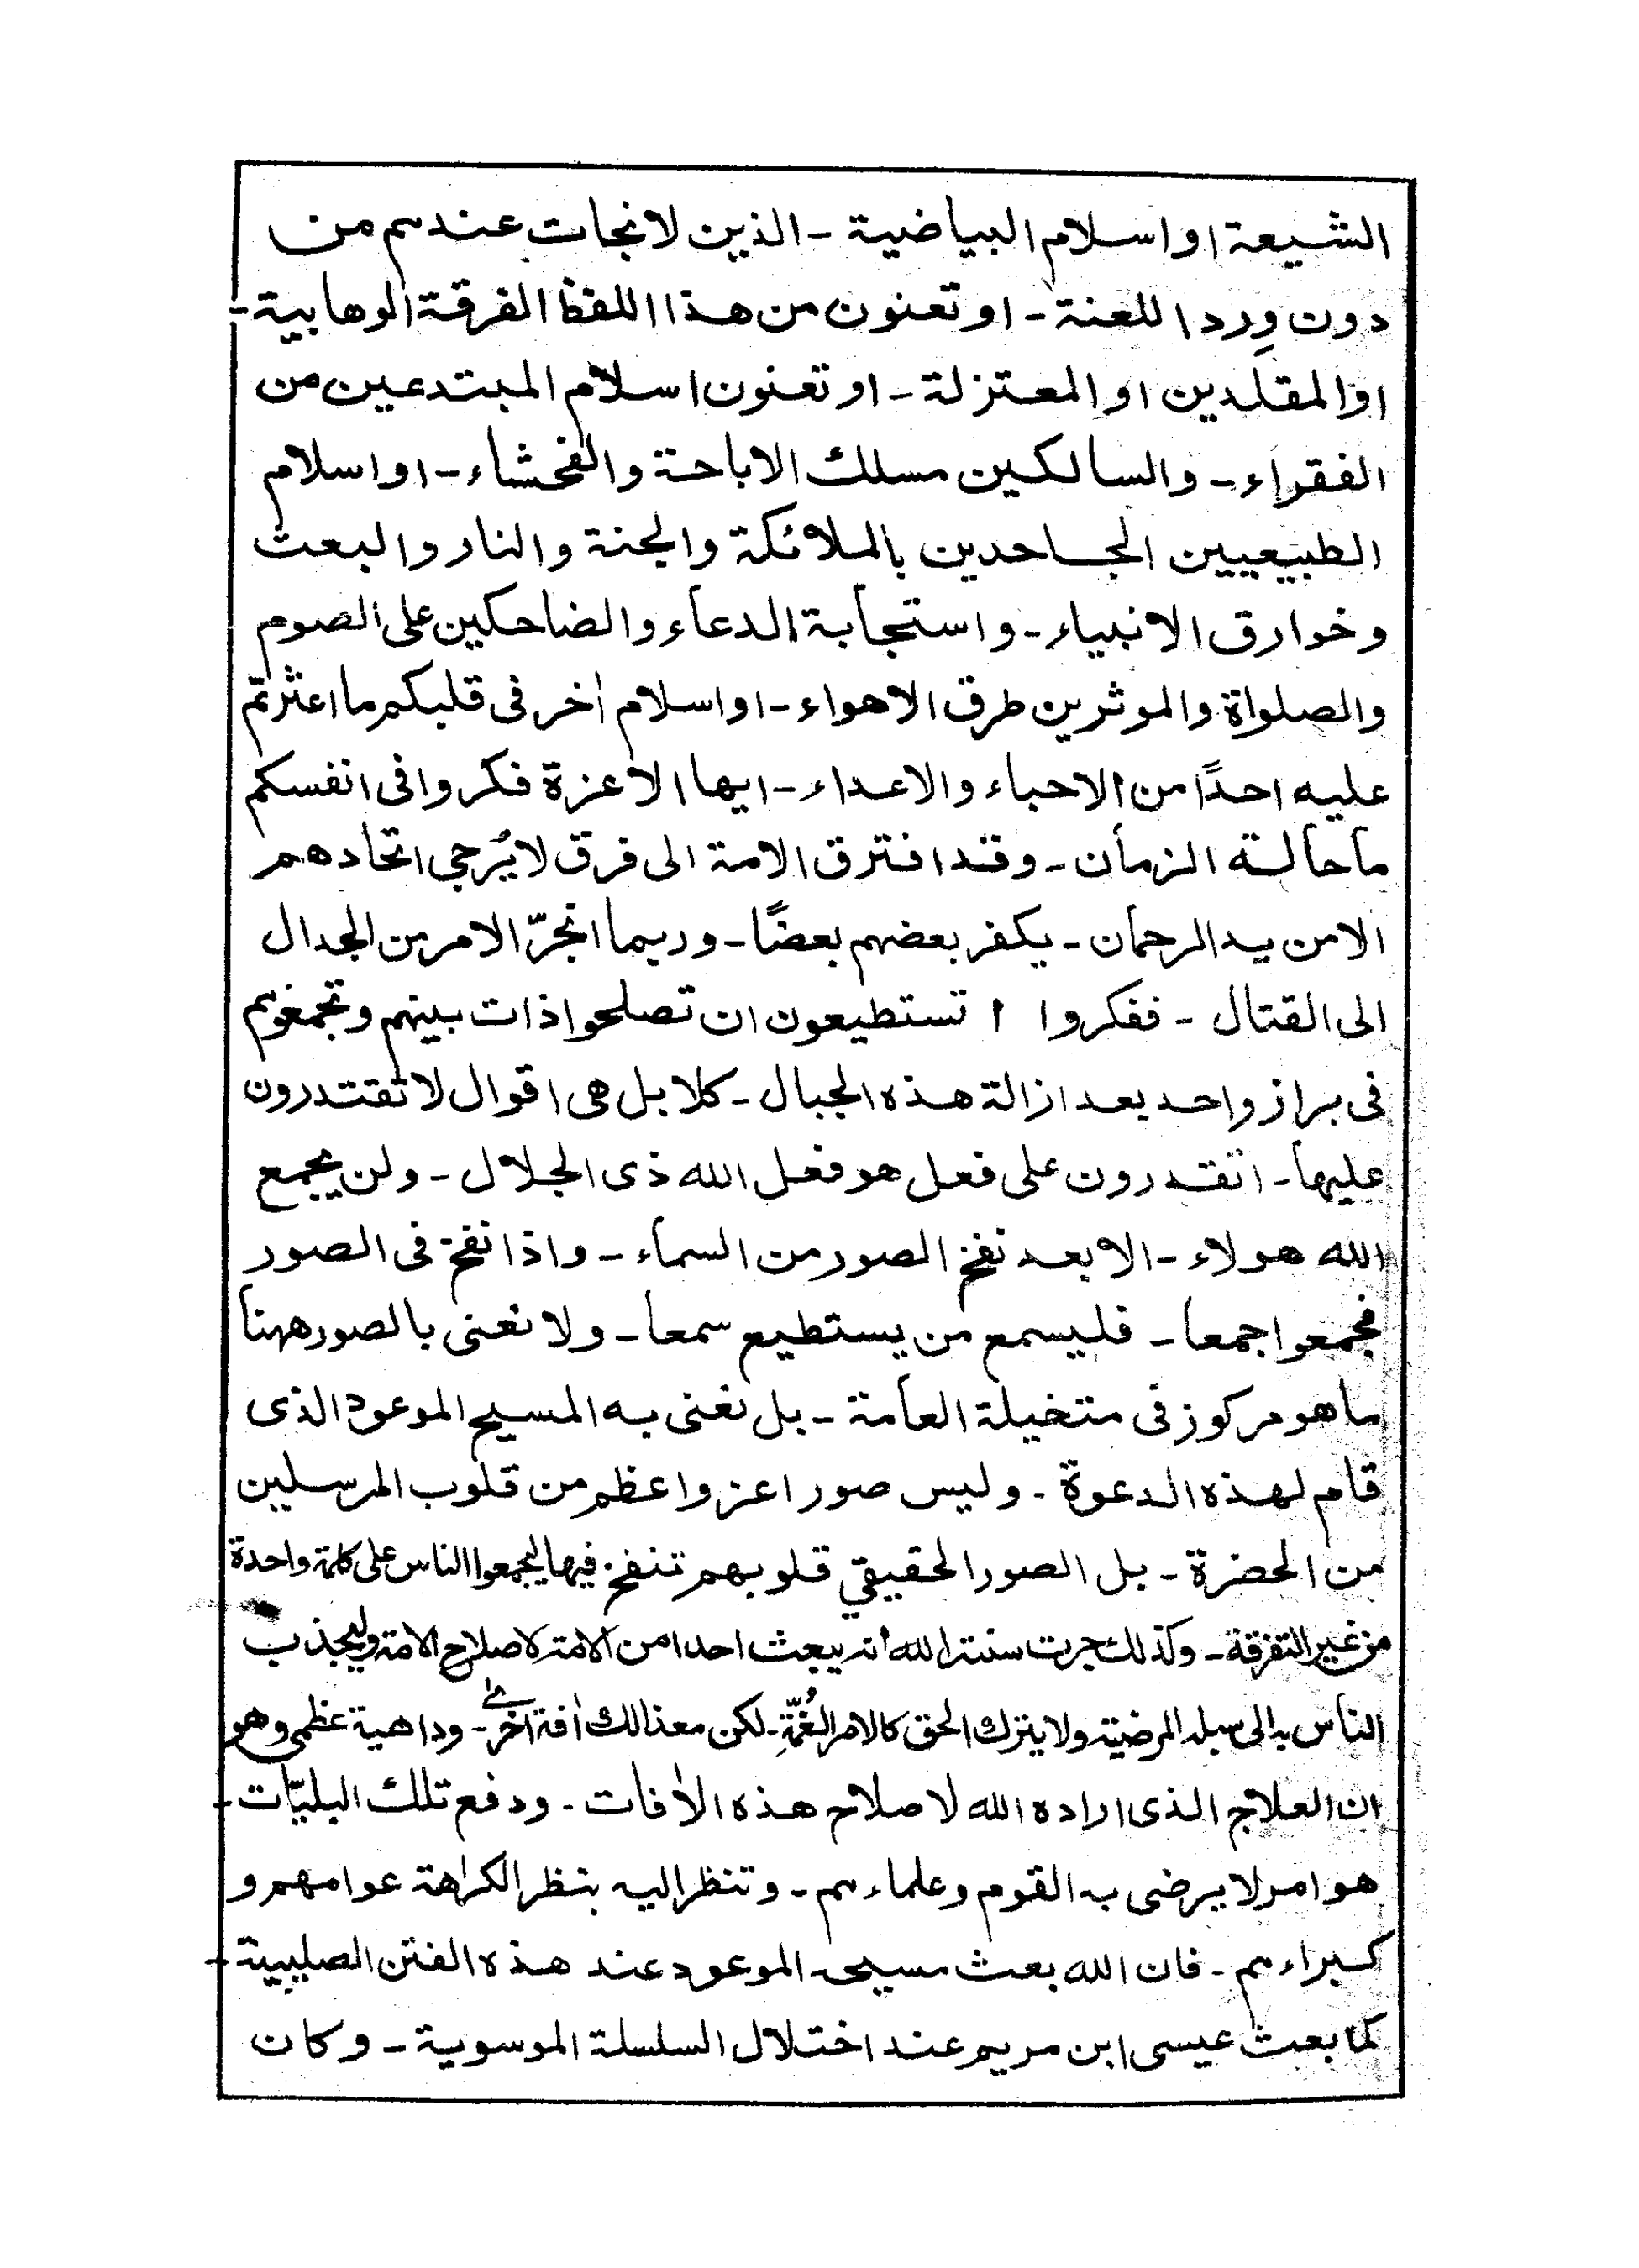 الشيعة او اسلام البياضية - الذين لا نجات عندهم من
دون وِرد اللعنة - او تعنون من هذا اللفظ الفرقة الوهابية -
او المقلدين او المعتزلة - او تعنون اسلام المبتدعين من
الفقراء - والسالكين مسلك الاباحة والفحشاء - او اسلام
الطبيعيين الجاحدين بالملائكة والجنة والنار والبعث
وخوارق الانبياء - واستجابة الدعاء والضاحكين على الصوم
والصلواة والموثرين طرق الاهواء - او اسلام اٰخر فى قلبكم ما اعثرتم
عليه احدًا من الاحباء والاعداء - ايها الاعزة فكروا فى انفسكم
ما حالة الزمان - وقد افترق الامة الى فرق لا يُرجي اتحادهم
الا من يد الرحمان - يكفر بعضهم بعضًا - وربما انجرّ الامر من الجدال
الى القتال - ففكروا أ تستطيعون ان تصلحوا ذات بينهم وتجمعوهم
فى براز واحد بعد ازالة هذه الجبال - كلا بل هى اقوال لا تقتدرون
عليها - اتقدرون على فعل هو فعل الله ذى الجلال - ولن يجمع
الله هولاء - الا بعد نفخ الصور من السماء - واذا نفخ فى الصور
فجمعوا جمعا - فليسمع من يستطيع سمعا - ولا نعنى بالصور ههنا
ما هو مركوز فى متخيلة العامة - بل نعنى به المسيح الموعود الذى
قام لهذه الدعوة - وليس صور اعز واعظم من قلوب المرسلين
من الحضرة - بل الصور الحقيقي قلوبهم تنفخ فيها ليجمعوا الناس على كلمة واحدة
من غير التفرقة - وكذلك جرت سنة الله انه يبعث احدا من الامة لاصلاح الامة وليجذب
الناس به الى سبله المرضية ولا يترك الحق كالامر الغُمّةِ - لكن مع ذالك اٰفة اخرٰى - وداهية عظمى وهو
ان العلاج الذى اراده الله لاصلاح هذه الاٰفات - ودفع تلك البليّات -
هو امر لا يرضى به القوم وعلماءهم - وتنظر اليه بنظر الكراهة عوامهم و
كبراءهم - فان الله بعث مسيحه الموعود عند هذه الفتن الصليبية -
كما بعث عيسى ابن مريم عند اختلال السلسلة الموسوية - وكان